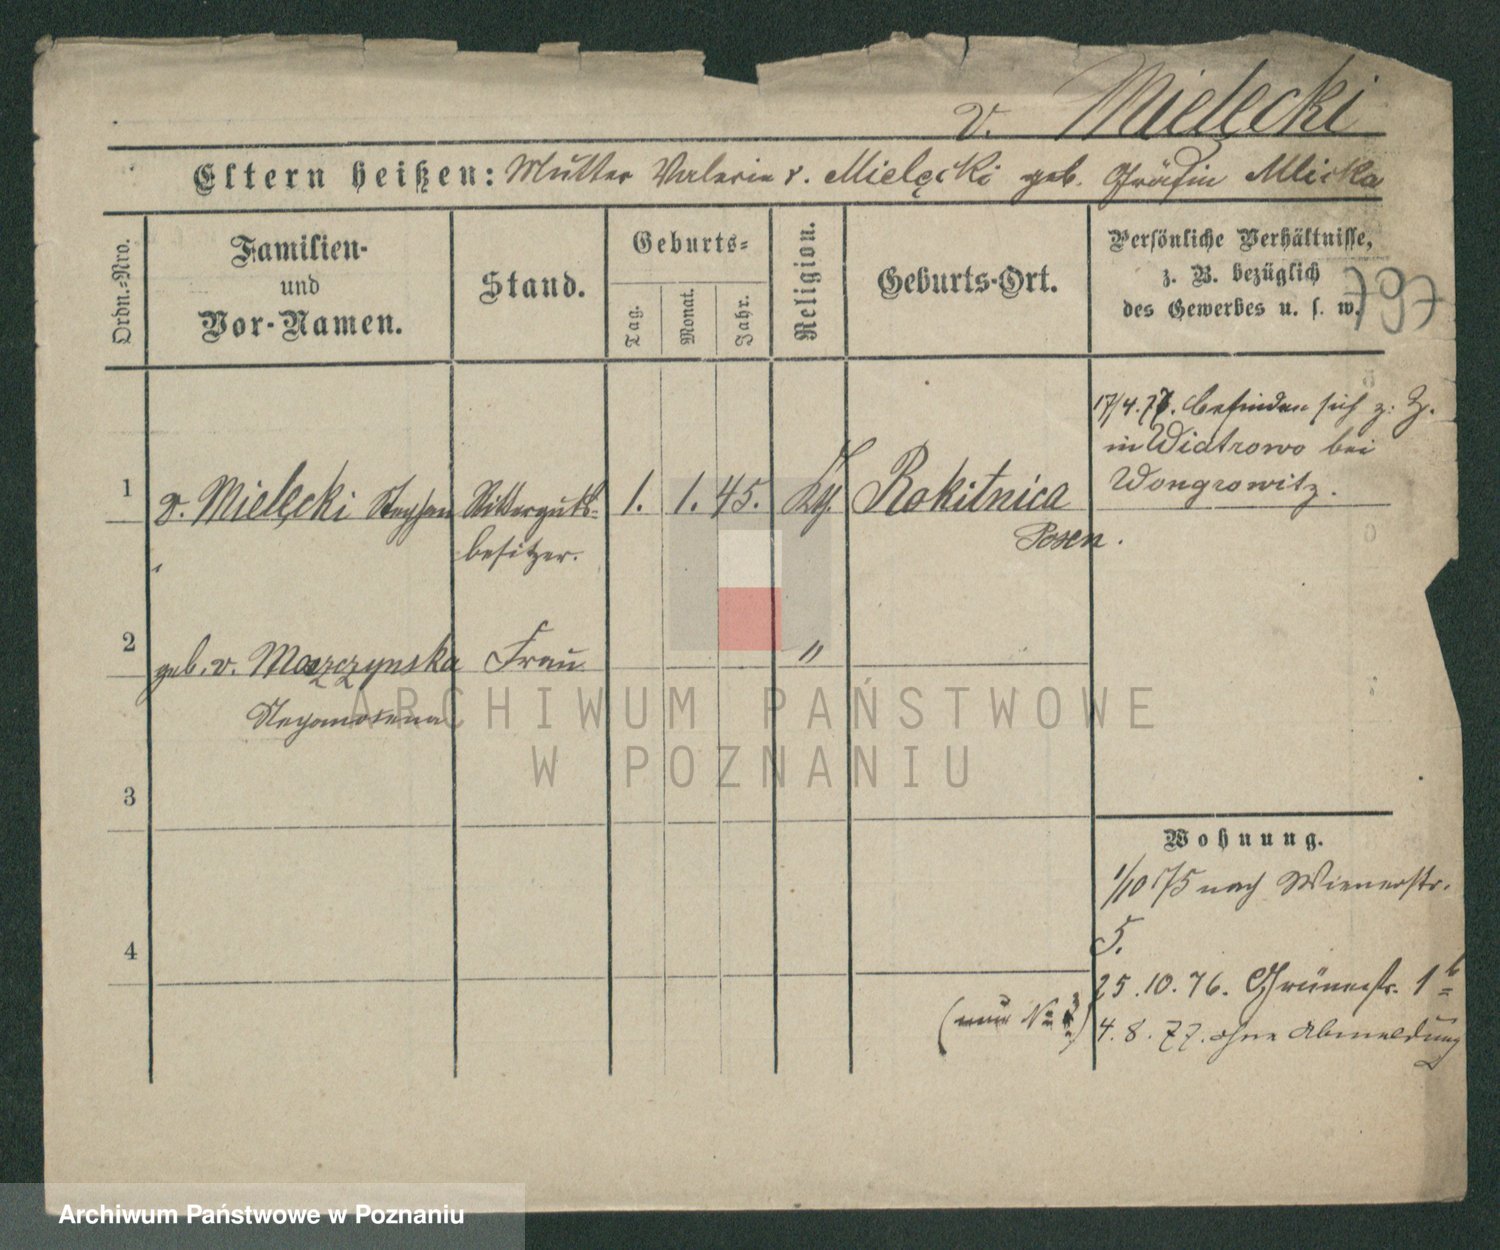 v. Mielęcki
Eltern heißen: Mutter Valerie v. Mielęcki geb. Gräfin Mlicka
Ordn.-Nro.
Familien-
und
Vor-Namen.
Stand.
Geburts-
Tag.
Monat.
Jahr.
Religion.
Geburts-Ort.
Persönliche Verhältnisse,
z. B. bezüglich
des Gewerbes u. s. w.
797
1
v. Mielęcki Stephan
Ritterguts-
besitzer.
1. 1. 45.
Kth.
Rokitnica
Posen.
17/4.77. befinden sich z. Z.
in Wiatrowo bei
Wongrowitz.
2
geb. v. Moszczynska
Frau
"
3
4
Wohnung.
1/10 75 nach Wienerstr.
5.
25.10.76. Grünestr. 1b
4.8.77. ohne Abmeldung
ARCHIWUM PAŃSTWOWE
W POZNANIU
Archiwum Państwowe w Poznaniu